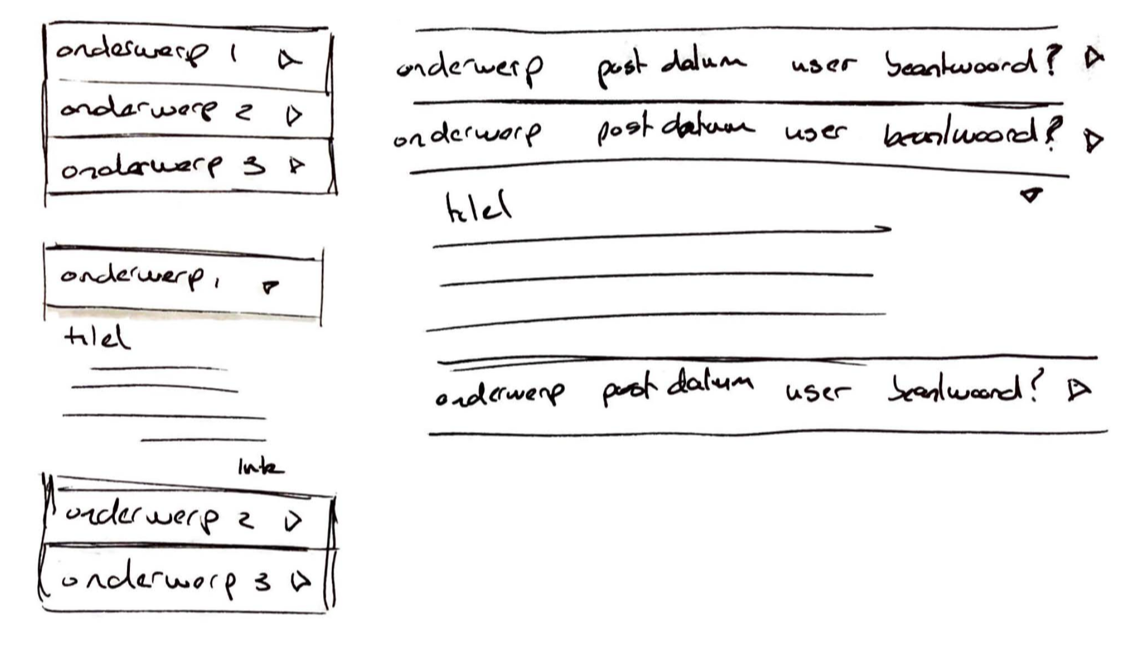 onderwerp 1
onderwerp 2
onderwerp 3
onderwerp 1
titel
link
onderwerp 2
onderwerp 3
onderwerp post datum user beantwoord?
onderwerp post datum user beantwoord?
titel
onderwerp post datum user beantwoord?